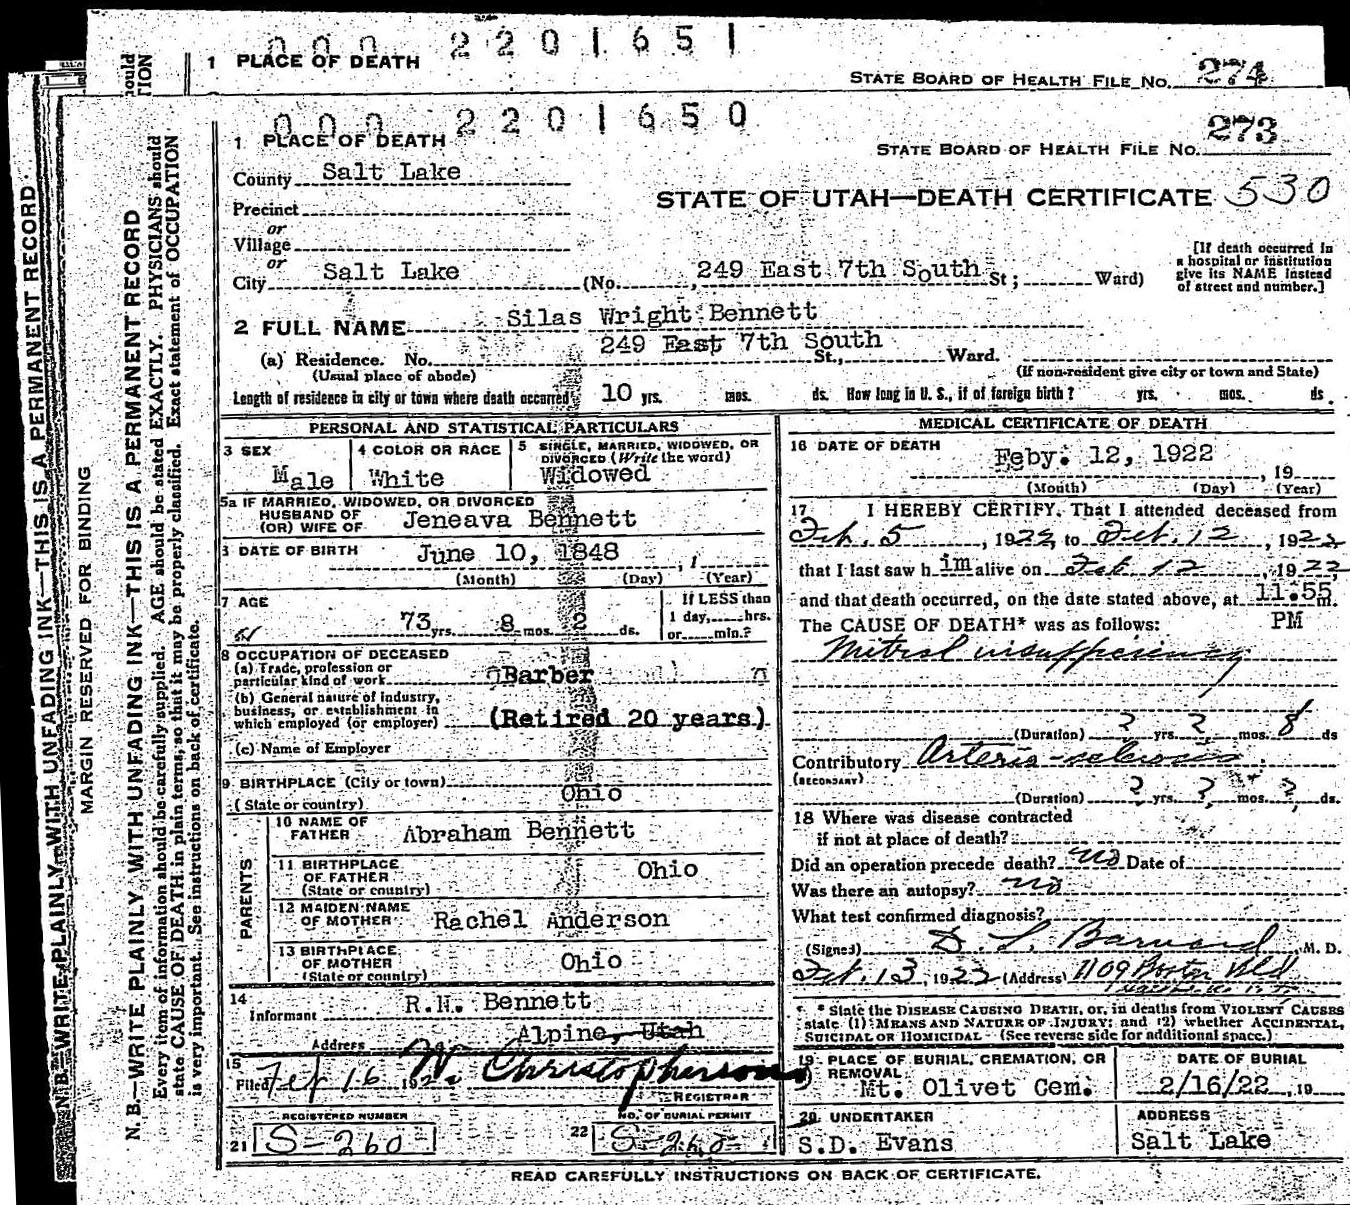 000 2201651
1 PLACE OF DEATH
STATE BOARD OF HEALTH FILE NO. 274
000 2201650
1 PLACE OF DEATH
STATE BOARD OF HEALTH FILE NO. 273
County Salt Lake
STATE OF UTAH—DEATH CERTIFICATE 530
Precinct
or
Village
or
City Salt Lake (No. 249 East 7th South St; Ward)
[If death occurred in
a hospital or institution
give its NAME instead
of street and number.]
2 FULL NAME Silas Wright Bennett
(a) Residence. No. 249 East 7th South St., Ward.
(Usual place of abode) (If non-resident give city or town and State)
Length of residence in city or town where death occurred 10 yrs. mos. ds. How long in U. S., if of foreign birth? yrs. mos. ds.
PERSONAL AND STATISTICAL PARTICULARS
3 SEX Male
4 COLOR OR RACE White
5 SINGLE, MARRIED, WIDOWED, OR
DIVORCED (Write the word)
Widowed
5a IF MARRIED, WIDOWED, OR DIVORCED
HUSBAND OF
(OR) WIFE OF Jeneava Bennett
DATE OF BIRTH June 10, 1848 , 1
(Month) (Day) (Year)
7 AGE 73 yrs. 8 mos. 2 ds.
If LESS than
1 day, hrs.
or min.?
8 OCCUPATION OF DECEASED
(a) Trade, profession or
particular kind of work Barber
(b) General nature of industry,
business, or establishment in
which employed (or employer) (Retired 20 years)
(c) Name of Employer
9 BIRTHPLACE (City or town)
(State or country) Ohio
PARENTS
10 NAME OF
FATHER Abraham Bennett
11 BIRTHPLACE
OF FATHER
(State or country) Ohio
12 MAIDEN NAME
OF MOTHER Rachel Anderson
13 BIRTHPLACE
OF MOTHER
(State or country) Ohio
14
Informant R.H. Bennett
Address Alpine, Utah
15
Filed Feb 16 192 W. Christopherson
REGISTRAR
REGISTERED NUMBER
21 S-260
NO. OF BURIAL PERMIT
22 S-260
MEDICAL CERTIFICATE OF DEATH
16 DATE OF DEATH
Feby. 12, 1922 , 19
(Month) (Day) (Year)
17 I HEREBY CERTIFY, That I attended deceased from
Feb. 5, 1922, to Feb. 12, 1922
that I last saw him alive on Feb 12, 1922
and that death occurred, on the date stated above, at 11:55 m.
The CAUSE OF DEATH* was as follows: PM
Mitral insufficiency
(Duration) ? yrs. ? mos. 8 ds
Contributory Arterio-sclerosis.
(SECONDARY)
(Duration) ? yrs. ? mos. ? ds.
18 Where was disease contracted
if not at place of death?
Did an operation precede death? no Date of
Was there an autopsy? no
What test confirmed diagnosis?
(Signed) D. L. Barnard M. D.
Feb. 13, 1923 (Address) 1109 Boston Bld
* State the DISEASE CAUSING DEATH, or, in deaths from VIOLENT CAUSES
state (1) MEANS AND NATURE OF INJURY; and (2) whether ACCIDENTAL,
SUICIDAL OR HOMICIDAL (See reverse side for additional space.)
19 PLACE OF BURIAL, CREMATION, OR
REMOVAL
Mt. Olivet Cem.
DATE OF BURIAL
2/16/22, 19
20 UNDERTAKER
S.D. Evans
ADDRESS
Salt Lake
READ CAREFULLY INSTRUCTIONS ON BACK OF CERTIFICATE.
MARGIN RESERVED FOR BINDING
N. B.—WRITE PLAINLY, WITH UNFADING INK—THIS IS A PERMANENT RECORD
Every item of information should be carefully supplied. AGE should be stated EXACTLY. PHYSICIANS should
state CAUSE OF DEATH in plain terms, so that it may be properly classified. Exact statement of OCCUPATION
is very important. See instructions on back of certificate.
N. B.—WRITE PLAINLY, WITH UNFADING INK—THIS IS A PERMANENT RECORD